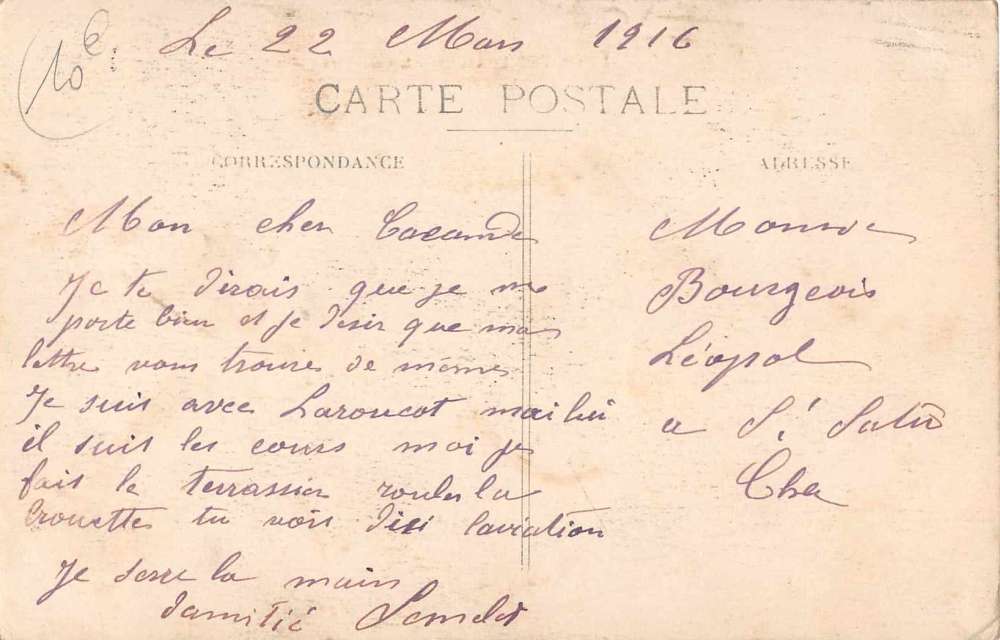 10 €
Le 22 Mars 1916
CARTE POSTALE
CORRESPONDANCE
ADRESSE
Mon cher
Je te dirais que je me
porte bien et je desir que ma
lettre vous trouve de même
Je suis avec Laroucot mai lui
il suit les cours moi je
fait le terrassier rouler la
brouette tu vois d'ici laviation
Je serre la main
damitié
Bourgeois
Léopol
a St Satur
Cher